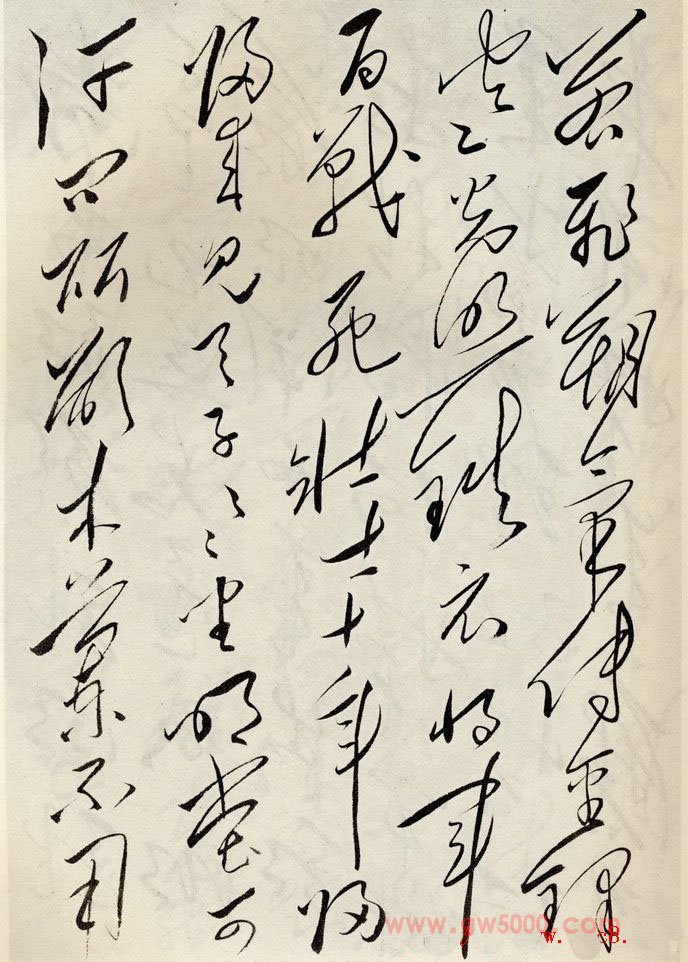 若飛朔氣傳金鐸
寒光照鐵衣將軍
百戰死壯士十年歸
歸來見天子〻〻坐明堂可
汗問所欲木蘭不用
www.gw5000.com